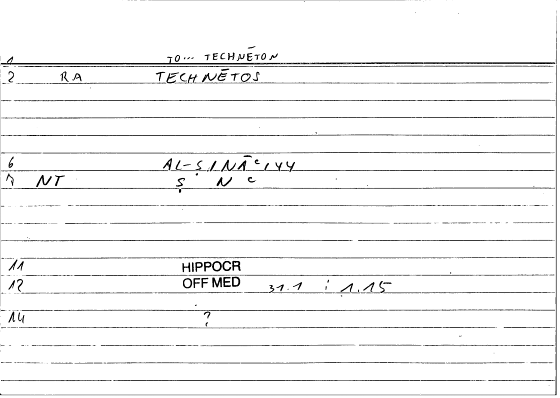 1 TO... TECHNĒTON
2 RA TECHNĒTOS
6 AL-ṢINĀʿIYY
7 NT Ṣ N ʿ
11 HIPPOCR
12 OFF MED 31.1 : 1.15
14 ?